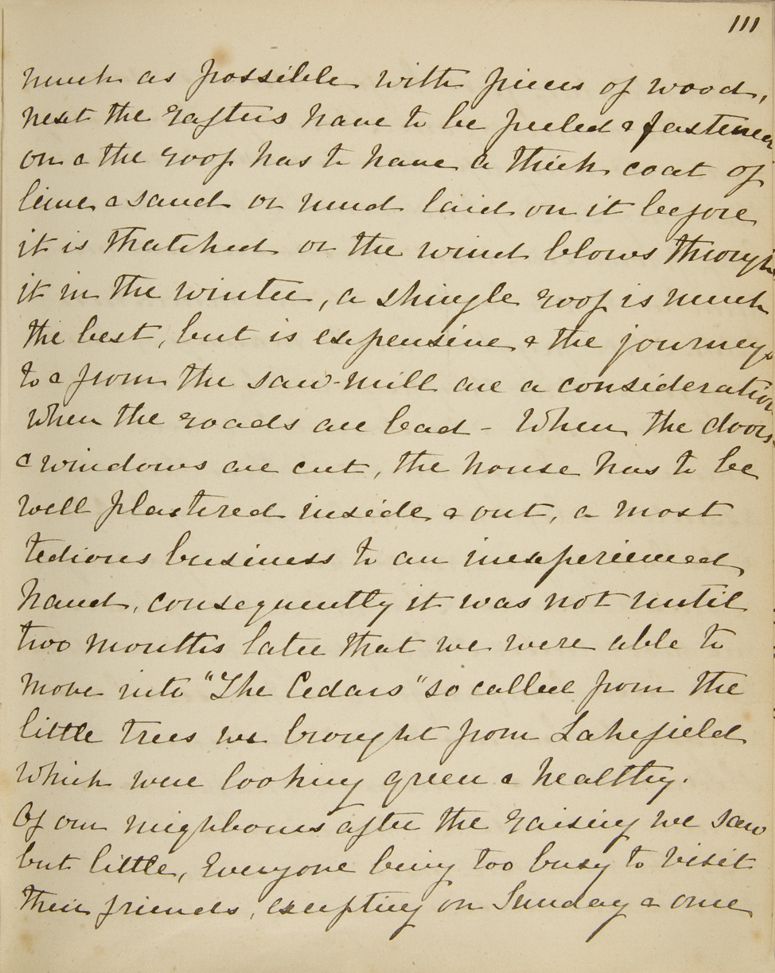 111
much as possible with pieces of wood,
next the rafters have to be peeled & fastened
on & the roof has to have a thick coat of
lime & sand or mud laid on it before
it is thatched or the wind blows through
it in the winter, a shingle roof is much
the best, but is expensive & the journeys
to & from the saw-mill are a consideration
when the roads are bad - When the doors
& windows are cut, the house has to be
well plastered inside & out, a most
tedious business to an inexperienced
hand, consequently it was not until
two months later that we were able to
move into "The Cedars" so called from the
little trees we brought from Lakefield
which were looking green & healthy.
Of our neighbours after the raising we saw
but little, everyone being too busy to visit
their friends, excepting on Sunday & one